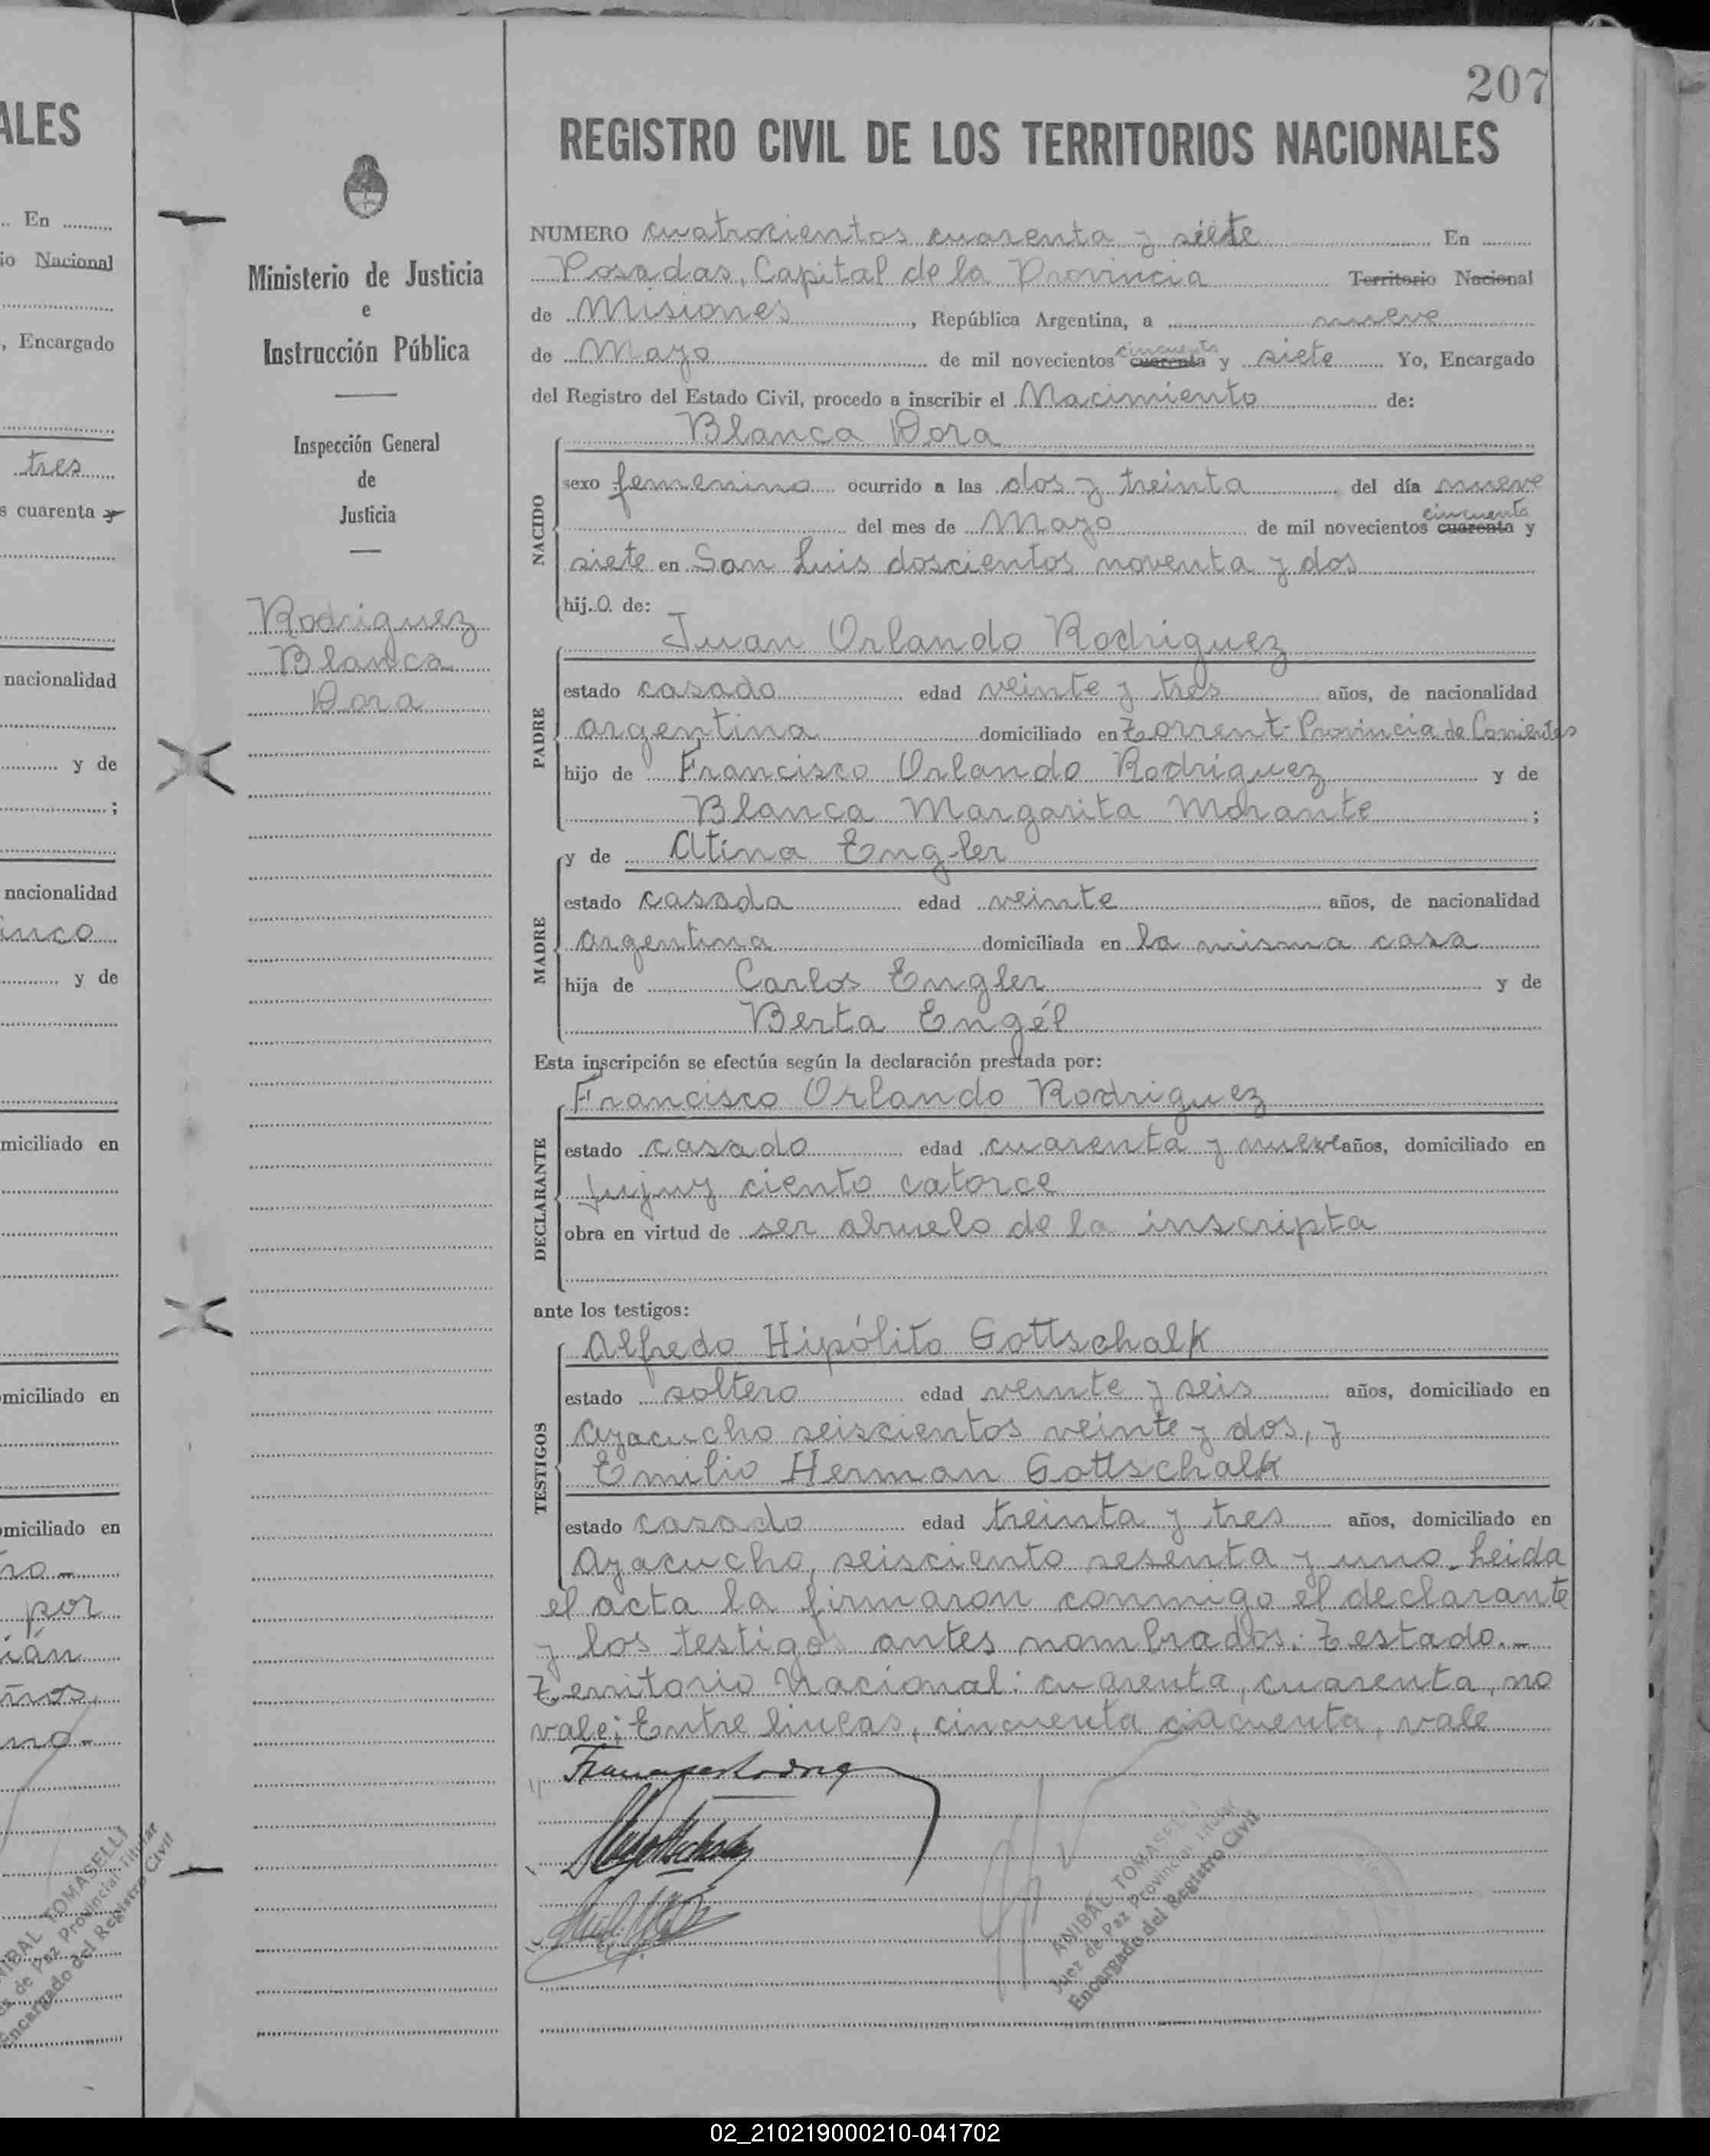 207
REGISTRO CIVIL DE LOS TERRITORIOS NACIONALES
Ministerio de Justicia
e
Instrucción Pública
Inspección General
de
Justicia
Rodriguez
Blanca
Dora
NUMERO cuatrocientos cuarenta y siete En
Posadas, Capital de la Provincia Territorio Nacional
de Misiones, República Argentina, a nueve
de Mayo de mil novecientos cuarenta cincuenta y siete Yo, Encargado
del Registro del Estado Civil, procedo a inscribir el Nacimiento de:
Blanca Dora
NACIDO
sexo femenino ocurrido a las dos y treinta del día nueve
del mes de Mayo de mil novecientos cuarenta cincuenta y
siete en San Luis doscientos noventa y dos
hij.o. de:
Juan Orlando Rodriguez
PADRE
estado casado edad veinte y tres años, de nacionalidad
argentina domiciliado en Torrent- Provincia de Corrientes
hijo de Francisco Orlando Rodriguez y de
Blanca Margarita Morante ;
MADRE
y de Atina Engler
estado casada edad veinte años, de nacionalidad
argentina domiciliada en la misma casa
hija de Carlos Engler y de
Berta Engél
Esta inscripción se efectúa según la declaración prestada por:
Francisco Orlando Rodriguez
DECLARANTE
estado casado edad cuarenta y nueve años, domiciliado en
Jujuy ciento catorce
obra en virtud de ser abuelo de la inscripta
ante los testigos:
Alfredo Hipólito Gottschalk
TESTIGOS
estado soltero edad veinte y seis años, domiciliado en
Ayacucho seiscientos veinte y dos, y
Emilio Herman Gottschalk
estado casado edad treinta y tres años, domiciliado en
Ayacucho, seisciento sesenta y uno. Leida
el acta la firmaron conmigo el declarante
y los testigos antes nombrados. Testado.-
Territorio Nacional: cuarenta, cuarenta, no
vale; Entre lineas, cincuenta cincuenta, vale
ANIBAL TOMASELLI
Juez de Paz Provincial Titular
Encargado del Registro Civil
ALES
En
io Nacional
, Encargado
tres
s cuarenta y
nacionalidad
y de
;
nacionalidad
inco
y de
miciliado en
omiciliado en
omiciliado en
no-
por
ián
ños,
no-
NIBAL TOMASELLI
ez de Paz Provincial Titular
Encargado del Registro Civil
02_210219000210-041702